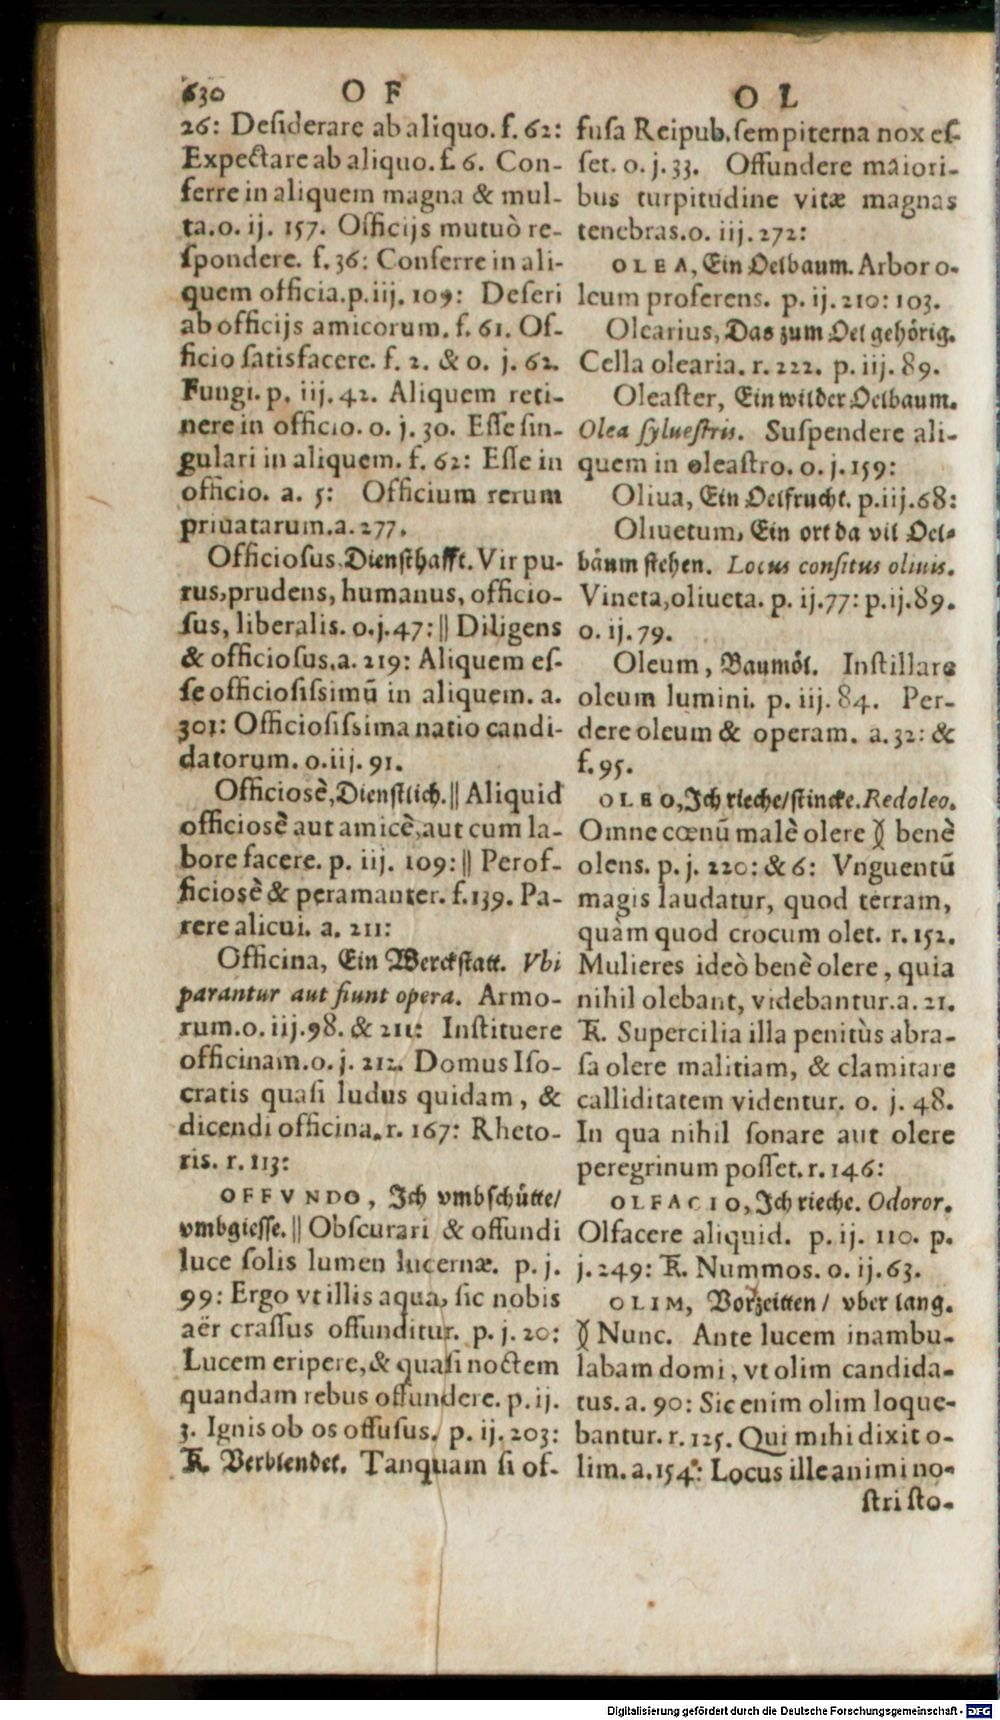 630 O F
26: Deſiderare ab aliquo. f. 62:
Expectare ab aliquo. f. 6. Con-
ferre in aliquem magna & mul-
ta. o. ij. 157. Officijs mutuò re-
ſpondere. f. 36: Conferre in ali-
quem officia. p. iij. 109: Deſeri
ab officijs amicorum. f. 61. Of-
ficio ſatisfacere. f. 2. & o. j. 62.
Fungi. p. iij. 42. Aliquem reti-
nere in officio. o. j. 30. Eſſe ſin-
gulari in aliquem. f. 62: Eſſe in
officio. a. 5: Officium rerum
priuatarum. a. 277.
Officioſus, Dienſthafft. Vir pu-
rus, prudens, humanus, officio-
ſus, liberalis. o. j. 47: || Diligens
& officioſus. a. 219: Aliquem eſ-
ſe officioſiſsimū in aliquem. a.
301: Officioſiſsima natio candi-
datorum. o. iij. 91.
Officiosè, Dienſtlich. || Aliquid
officiosè aut amicè, aut cum la-
bore facere. p. iij. 109: || Perof-
ficiosè & peramanter. f. 139. Pa-
rere alicui. a. 211:
Officina, Ein Werckſtatt. Vbi
parantur aut fiunt opera. Armo-
rum. o. iij. 98. & 211: Inſtituere
officinam. o. j. 212. Domus Iſo-
cratis quaſi ludus quidam, &
dicendi officina. r. 167: Rheto-
ris. r. 113:
OFFVNDO, Ich vmbſchütte/
vmbgieſſe. || Obſcurari & offundi
luce ſolis lumen lucernæ. p. j.
99: Ergo vt illis aqua, ſic nobis
aër craſſus offunditur. p. j. 20:
Lucem eripere, & quaſi noctem
quandam rebus offundere. p. ij.
3. Ignis ob os offuſus. p. ij. 203:
Verblendet. Tanquam ſi of-
O L
fuſa Reipub. ſempiterna nox eſ-
ſet. o. j. 33. Offundere maiori-
bus turpitudine vitæ magnas
tenebras. o. iij. 272:
OLEA, Ein Oelbaum. Arbor o-
leum proferens. p. ij. 210: 103.
Olearius, Das zum Oel gehörig.
Cella olearia. r. 222. p. iij. 89.
Oleaſter, Ein wilder Oelbaum.
Olea ſylueſtris. Suſpendere ali-
quem in oleaſtro. o. j. 159:
Oliua, Ein Oelfrucht. p. iij. 68:
Oliuetum, Ein ort da vil Oel-
bäum ſtehen. Locus conſitus oliuis.
Vineta, oliueta. p. ij. 77: p. ij. 89.
o. ij. 79.
Oleum, Baumöl. Inſtillare
oleum lumini. p. iij. 84. Per-
dere oleum & operam. a. 32: &
f. 95.
OLEO, Ich rieche/ ſtincke. Redoleo.
Omne cœnū malè olere benè
olens. p. j. 220: & 6: Vnguentū
magis laudatur, quod terram,
quàm quod crocum olet. r. 152.
Mulieres ideò benè olere, quia
nihil olebant, videbantur. a. 21.
Supercilia illa penitùs abra-
ſa olere malitiam, & clamitare
calliditatem videntur. o. j. 48.
In qua nihil ſonare aut olere
peregrinum poſſet. r. 146:
OLFACIO, Ich rieche. Odoror.
Olfacere aliquid. p. ij. 110. p.
j. 249: Nummos. o. ij. 63.
OLIM, Vorzeitten/ vber lang.
Nunc. Ante lucem inambu-
labam domi, vt olim candida-
tus. a. 90: Sic enim olim loque-
bantur. r. 125. Qui mihi dixit o-
lim. a. 154: Locus ille animi no-
ſtri ſto-
Digitalisierung gefördert durch die Deutsche Forschungsgemeinschaft - DFG